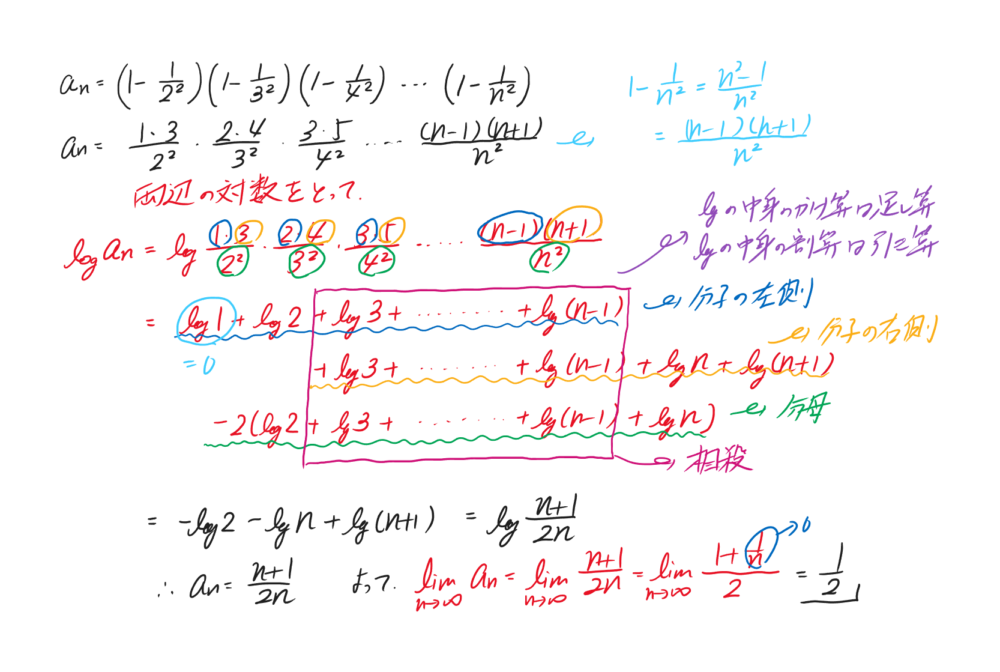 aₙ = (1 - 1/2²)(1 - 1/3²)(1 - 1/4²) ⋯ (1 - 1/n²)
1 - 1/n² = (n²-1)/n²
= (n-1)(n+1)/n²
aₙ = 1·3/2² · 2·4/3² · 3·5/4² ⋯ (n-1)(n+1)/n²
両辺の対数をとって.
logの中身のかけ算は足し算
logの中身の割算は引き算
log aₙ = log 1·3/2² · 2·4/3² · 3·5/4² · ⋯ (n-1)(n+1)/n²
= log1 + log2 + log3 + ⋯⋯ + log(n-1) 分子の左側
= 0
分子の右側
+ log3 + ⋯⋯ + log(n-1) + logn + log(n+1)
-2(log2 + log3 + ⋯⋯ + log(n-1) + logn) 分母
相殺
= -log2 - logn + log(n+1) = log (n+1)/2n
∴ aₙ = (n+1)/2n よって. lim n→∞ aₙ = lim n→∞ (n+1)/2n = lim n→∞ (1 + 1/n)/2 = 1/2
→0